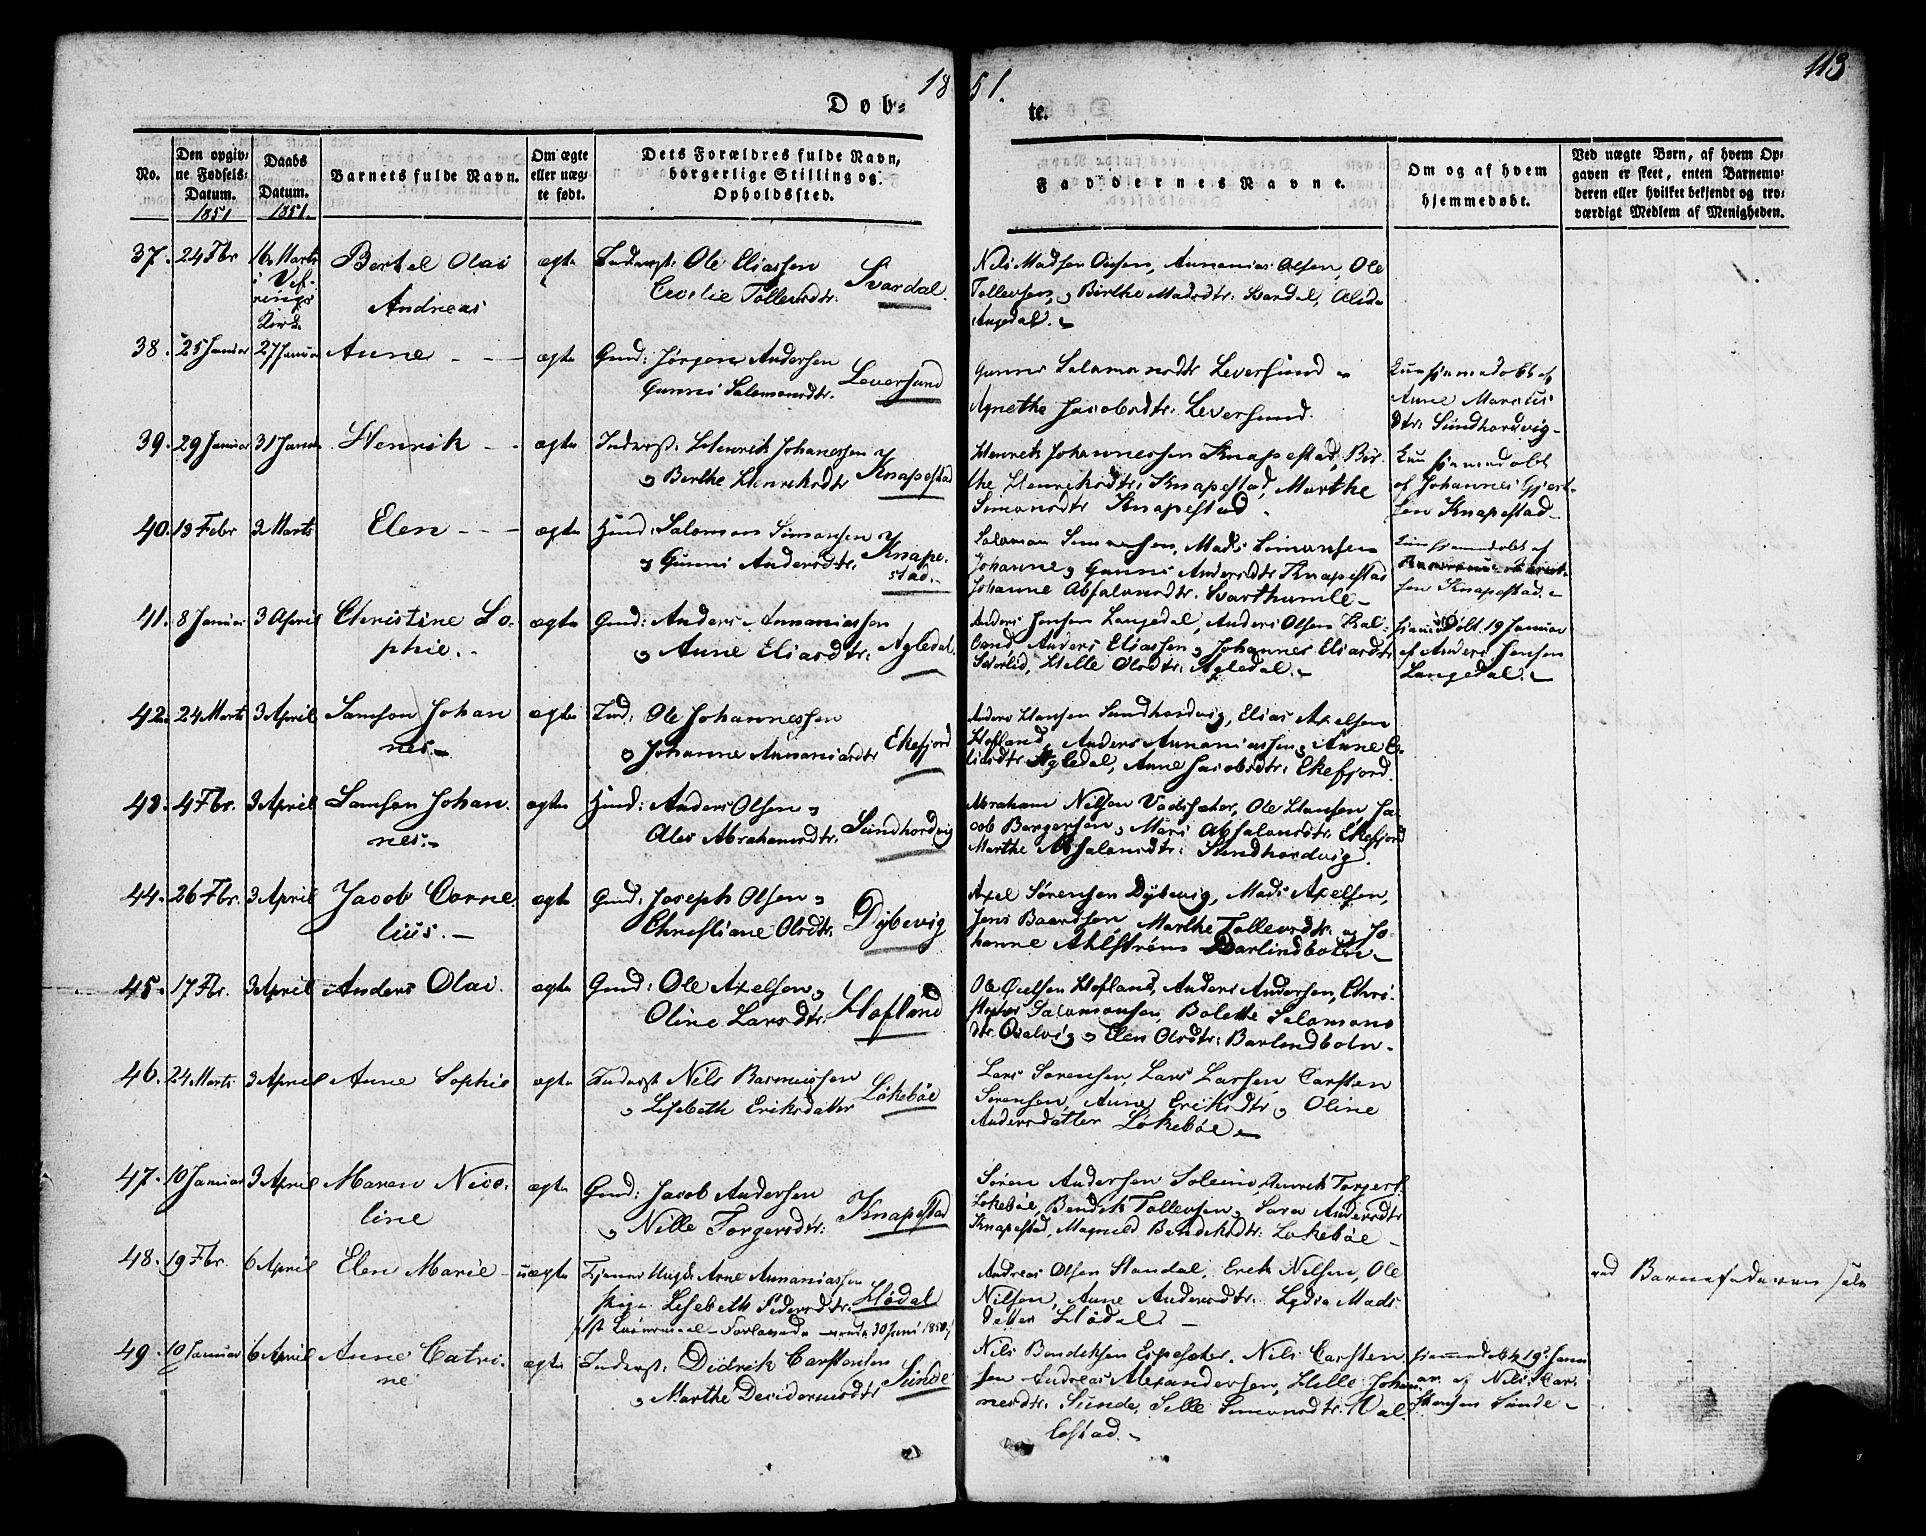 1851.
113
Døb-te.
No.
Den opgiv-
ne Fødsels-
Datum.
1851
Daabs
Datum.
1851.
Barnets fulde Navn.
Om ægte
eller uæg-
te født.
Dets Forældres fulde Navn,
borgerlige Stilling og
Opholdssted.
Faddernes Navne.
Om og af hvem
hjemmedøbt.
Ved uægte Børn, af hvem Op-
gaven er skeet, enten Barnemo-
deren eller hvilket bekjendt og tro-
værdigt Medlem af Menigheden.
37. 24 Fbr 16 Marts i Vef-
rings
Kirke
Bertel Olai
Andreas
ægte
Inderst: Ole Eliassen
Cecilie Tollevsdtr: Svardal.
Nils Madsen Ousen, Annanias Olsen, Ole
Tollevsen, og Birthe Madsdtr: Svardal, Alida
Angedal.
38. 25 Januar 27 Januar Anne
ægte
Gmd: Jørgen Andersen
Gunni Salamonsdtr. Leversund
Gunni Salamonsdtr Leversund og
Agnethe Jacobsdtr: Leversund.
Kun hjemmedøbt af
Anne Marcus
dtr: Sundhordvig
39. 29 Januar 31 Januar Henrik
ægte
Inderst: Henrik Johanessen
og Berthe Henriksdtr Knapestad
Henrik Johannessen Knapestad, Bir-
the Henriksdtr: Knapestad, Marthe
Simonsdtr Knapestad.
Kun hjemmedøbt
af Johannes Gjert-
sen Knapestad
40. 13 Febr 2 Marts Elen
ægte
Hmd: Salomon Simonsen
og Gunni Andersdtr: Knape-
stad.
Salamon Simonsen, Mads Simonsen
Johanne og Gunni Andersdtr Knapestad
Johanne Absalonsdtr. Svarthumle
Kun hjemmedøbt af
sen Knapestad.
41. 8 Januar 3 April Christine So-
phie.
ægte
Gmd: Anders Annaniassen
og Anne Eliasdtr: Agledal.
Anders Jensen Langedal, Anders Olsen Kal-
land, Anders Eliassen og Johannes Eliasdtr
Svorlid, Hille Olsdtr: Agledal.
hjemmedøbt. 19 Januar
af Anders Jensen
Langedal.
42. 24 Marts 3 April Samson Johan
nes.
ægte
Ind: Ole Johannessen
og Johanne Annaniasdtr Ekefjord
Anders Hansen Sundhordvig, Elias Axelsen
Hofland, Anders Annaniassen og Anne E-
liasdtr Agledal, Anne Jacobsdtr: Ekefjord.
43. 4 Fbr. 3 April Samson Johan
nes.
ægte
Hmd: Anders Olsen og
Ales Abrahamsdtr: Sundhordvig
Abraham Nilsen Vadsæter, Ole Hansen Ja-
cob Bergersen, og Mari Absalonsdtr: Ekefjord
Marthe Absalonsdtr: Sundhordvig.
44. 26 Fbr. 3 April Jacob Corne
lius.
ægte
Gmd: Joseph Olsen og
Christiane Olsdtr: Dybevig
Axel Sørensen Dybevig, Mads Axelsen,
Jens Baardsen, Marthe Tollevsdtr: og Jo-
hanne Ahlstrøm Barlindbotn
45. 17 Fbr. 3 April Anders Olai.
ægte
Gmd: Ole Axelsen og
Oline Larsdtr: Hofland
Ole Hofland, Anders Andersen, Chri-
stopher Salamonsen, Bolette Salamons
dtr. og Elen Olsdtr: Barlindbotn
46. 24 Marts 3 April Anne Sophie
ægte
Inderst Nils Rasmussen
og Lisebeth Eriksdatter Løkebøe
Lars Sørensen, Lars Larsen, Carsten
Sørensen, Anne Eriksdtr og Oline
Andersdatter Løkebøe
47. 10 Januar 3 April Maren Nico-
line
ægte
Gmd: Jacob Andersen
og Nille Torgersdtr: Knapestad
Søren Andersen Henrik Torgers.
Løkebøe, Bendik Tollevsen og Sara Andersdtr
Knapestad, Magnild Bendiksdtr: Løkebøe
48. 19 Fbr. 6 April Elen Marie
uægte
Tjener Ungk: Arne Annaniassen
Pige Lisebeth Pedersdtr: Hødal
30 Juni 1850.
Andreas Olsen Standal, Erik Nilsen, Ole
Nilsen, Anne Andersdtr: Lydia Mads
datter Hødal
ved Barnefaderen selv
49. 10 Januar 6 April Anne Catri-
ne
ægte
Inderst: Didrik Carstensen
og Marthe Desideriusdtr Sunde
Nils Bendiksen Espesæter, Nils Carsten
sen Andreas Alexandersen, Hille Johan-
nesdtr: Sunde, Sille Simonsdtr: Val-
lestad.
hjemmedøbt 19de Janu
ar af Nils Car-
stensen Sunde